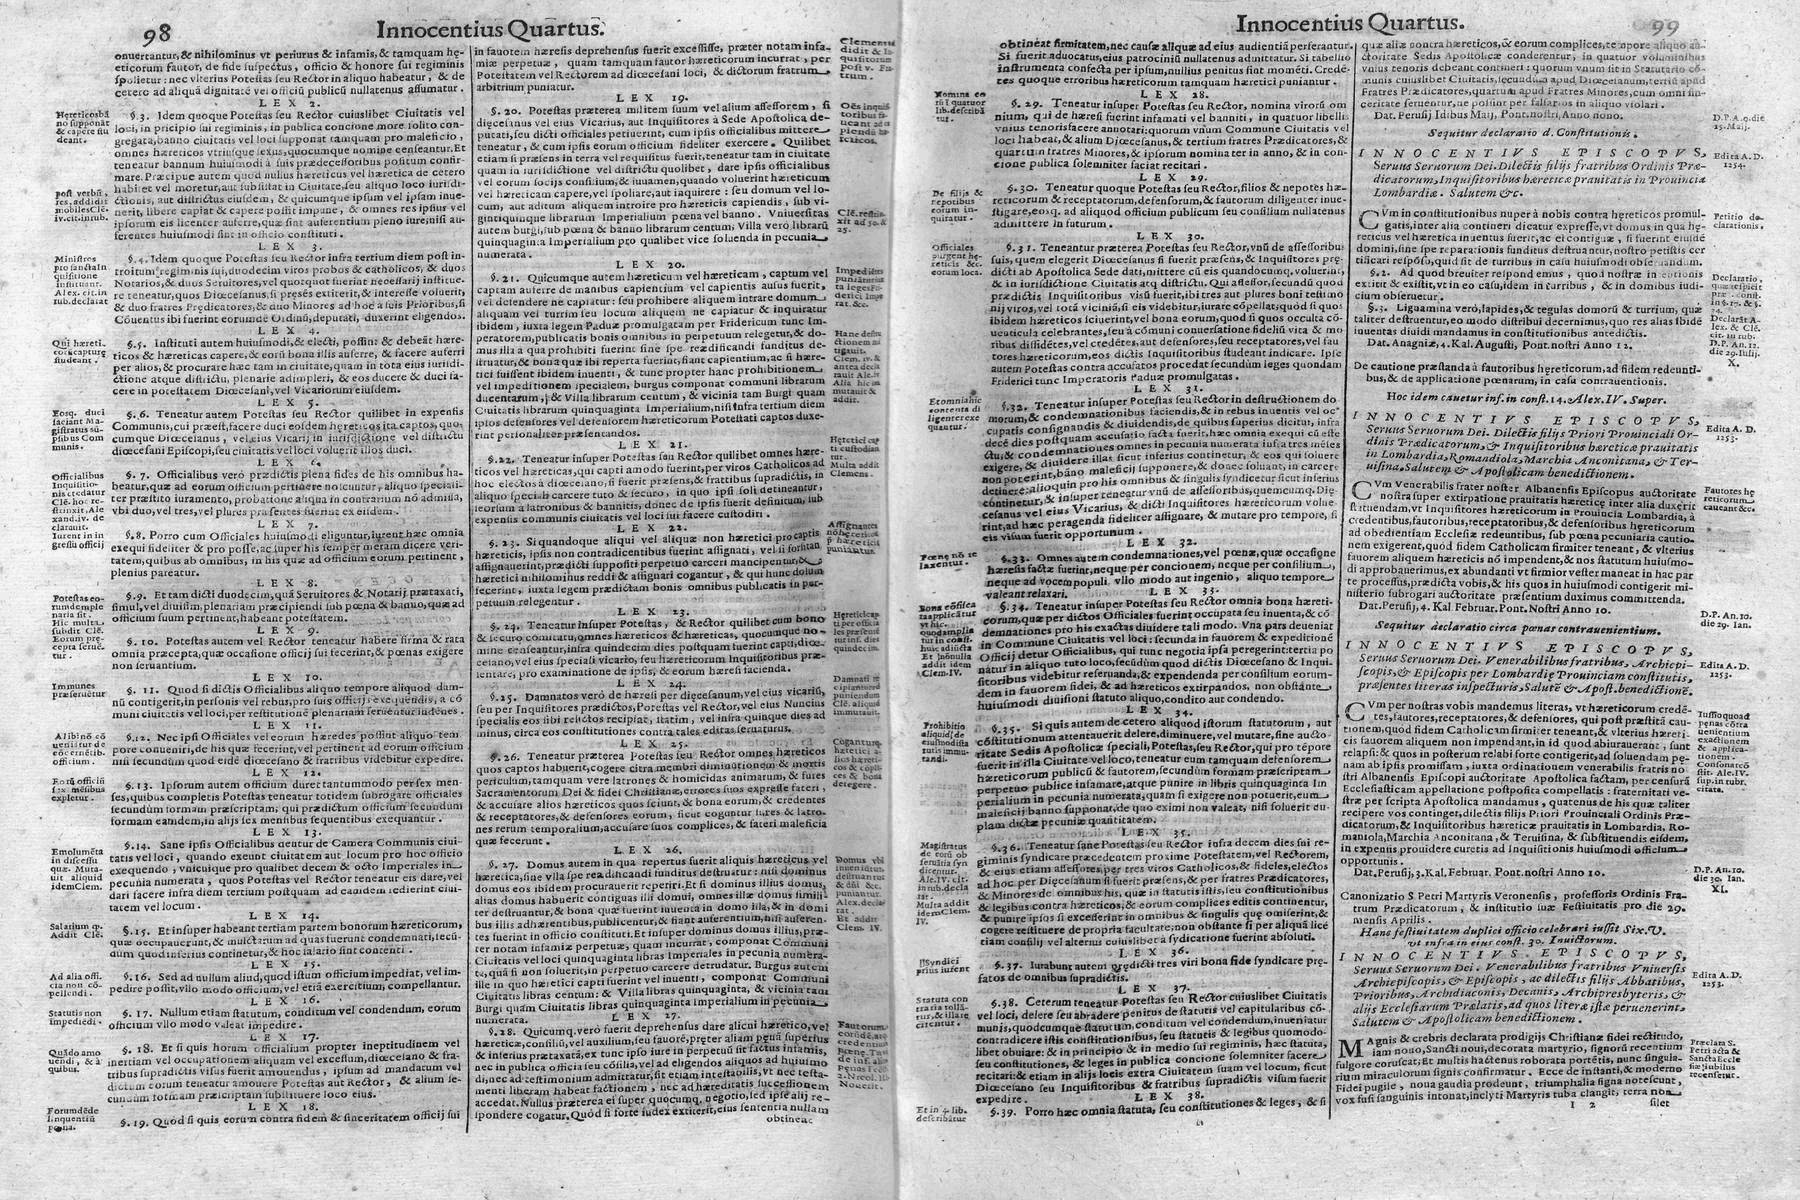 98
Innocentius Quartus.
onuertantur, & nihilominus vt periurus & infamis, & tamquam hę-
reticorum fautor, de fide suspectus, officio & honore sui regiminis
spolietur: nec vlterius Potestas seu Rector in aliquo habeatur, & de
cetero ad aliquā dignitatē vel officiū publicū nullatenus assumatur.
LEX 2.
§.3. Idem quoque Potestas seu Rector cuiuslibet Ciuitatis vel
loci, in pricipio sui regiminis, in publica concione more solito con-
gregata, banno ciuitatis vel loci supponat tamquam pro maleficio,
omnes hæreticos vtriusque sexus, quocumque nomine censeantur. Et
teneatur bannum huiusmodi à suis prædecessoribus positum confir-
mare. Præcipue autem quod nullus hæreticus vel hæretica de cetero
habitet vel moretur, aut subsistat in Ciuitate, seu aliquo loco iurisdi-
ctionis, aut districtus eiusdem, & quicumque ipsum vel ipsam inue-
nerit, libere capiat & capere possit impune, & omnes res ipsius vel
ipsorum eis licenter auferre, quæ sint auferentium pleno iure, nisi au-
ferentes huiusmodi sint in officio constituti.
LEX 3.
§.4. Idem quoque Potestas seu Rector infra tertium diem post in-
troitum regiminis sui, duodecim viros probos & catholicos, & duos
Notarios, & duos Seruitores, vel quotquot fuerint necessarij institue-
re teneatur, quos Diœcesanus, si pręsēs extiterit, & interesse voluerit,
& duo fratres Prędicatores, & duo Minores ad hoc à suis Prioribus, si
Cōuentus ibi fuerint eorumdē Ordinū, deputati, duxerint eligendos.
LEX 4.
§.5. Instituti autem huiusmodi, & electi, possint & debeāt hære-
ticos & hæreticas capere, & eorū bona illis auferre, & facere auferri
per alios, & procurare hæc tam in ciuitate, quam in tota eius iurisdi-
ctione atque districtu, plenarie adimpleri, & eos ducere & duci fa-
cere in potestatem Diœcesani, vel Vicariorum eiusdem.
LEX 5.
§.6. Teneatur autem Potestas seu Rector quilibet in expensis
Communis, cui præest, facere duci eosdem hęreticos ita captos, quo-
cumque Diœcesanus, vel eius Vicarij in iurisdictione vel districtu
diœcesani Episcopi, seu ciuitatis vel loci voluerit illos duci.
LEX 6.
§.7. Officialibus verò prædictis plena fides de his omnibus ha-
beatur, quæ ad eorum officium pertinere noscuntur, aliquo speciali-
ter præstito iuramento, probatione aliqua in contrarium nō admissa,
vbi duo, vel tres, vel plures præsentes fuerint ex eisdem.
LEX 7.
§.8. Porro cum Officiales huiusmodi eliguntur, iurent hæc omnia
exequi fideliter & pro posse, ac super his semper meram dicere veri-
tatem, quibus ab omnibus, in his quæ ad officium eorum pertinent,
plenius pareatur.
LEX 8.
§.9. Et tam dicti duodecim, quā Seruitores & Notarij prætaxati,
simul, vel diuisim, plenariam præcipiendi sub pœna & banno, quæ ad
officium suum pertinent, habeant potestatem.
LEX 9.
§.10. Potestas autem vel Rector teneatur habere firma & rata
omnia præcepta, quæ occasione officij sui fecerint, & pœnas exigere
non seruantium.
LEX 10.
§.11. Quod si dictis Officialibus aliquo tempore aliquod dam-
nū contigerit, in personis vel rebus, pro suis officijs exequendis, a cō
muni ciuitatis vel loci, per restitutionē plenariam seruentur indēnes.
LEX 11.
§.12. Nec ipsi Officiales vel eorum hæredes possint aliquo tem-
pore conueniri, de his quæ fecerint, vel pertinent ad eorum officium
nisi secundum quod eidē diœcesano & fratribus videbitur expedire.
LEX 12.
§.13. Ipsorum autem officium duret tantummodo per sex men-
ses, quibus completis Potestas teneatur totidem subrogare officiales
secundum formam præscriptam; qui prædictum officium secundum
formam eamdem, in alijs sex mensibus sequentibus exequantur.
LEX 13.
§.14. Sane ipsis Officialibus dentur de Camera Communis ciui-
tatis vel loci, quando exeunt ciuitatem aut locum pro hoc officio
exequendo, vnicuique pro qualibet decem & octo Imperiales in
pecunia numerata, quos Potestas vel Rector teneatur eis dare, vel
dare facere infra diem tertium postquam ad eamdem redierint ciui-
tatem vel locum.
LEX 14.
§.15. Et insuper habeant tertiam partem bonorum hæreticorum,
quæ occupauerunt, & mulctarum ad quas fuerunt condemnati, secū-
dum quod inferius continetur, & hoc salario sint contenti.
LEX 15.
§.16. Sed ad nullum aliud, quod istum officium impediat, vel im-
pedire possit, vllo modo officium, vel etiā exercitium, compellantur.
LEX 16.
§.17. Nullum etiam statutum, conditum vel condendum, eorum
officium vllo modo valeat impedire.
LEX 17.
§.18. Et si quis horum officialium propter ineptitudinem vel
inertiam vel occupationem aliquam vel excessum, diœcesano & fra-
tribus supradictis visus fuerit amouendus, ipsum ad mandatum vel
dictum eorum teneatur amouere Potestas aut Rector, & alium se-
cundum formam præscriptam substituere loco eius.
LEX 18.
§.19. Quod si quis eorum contra fidem & sinceritatem officij sui
Hæreticos bā
no supponāt
& capere stu
deant.
post verbū,
res, addidit
mobiles Clē.
iv. cit. in rub.
Ministros
pro sancta In
quisitione
instituant.
Alex. cit. in
rub. declarat
Qui hæreti-
cos capture
studeant.
Eosq. duci
faciant Ma-
gistratus sū-
ptibus Com
munis.
Officialibus
Inquisitio-
nis credatur
Clē. hoc re-
strinxit. Ale
xand. iv. de
clarauit.
Iurent in in
gressu officij
Potestas eo-
rumdem ple
naria sit
Hic multa
subdit Clē.
Eorum præ-
cepta seruē-
tur.
Immunes
præseruētur
Alibi nō cō
ueniātur de
eōcernētib.
officium.
Eorū officiū
sex mēsibus
expletur.
Emolumēta
in discessu
quæ. Muta-
uit aliquid
idem Clem.
Salarium q.
Addit Clē.
Ad alia offi-
cia non cō-
pellendi.
Statutis non
impediēdi.
Quādo amo
uendi, & à
quibus.
Forum dēde
linquentiū
pœna.
in fauorem hæresis deprehensus fuerit excessisse, præter notam infa-
miæ perpetuæ, quam tamquam fautor hæreticorum incurrat, per
Potestatem vel Rectorem ad diœcesani loci, & dictorum fratrum
arbitrium puniatur.
LEX 19.
§.20. Potestas præterea militem suum vel alium assessorem, si
diœcesanus vel eius Vicarius, aut Inquisitores à Sede Apostolica de-
putati, seu dicti officiales petiuerint, cum ipsis officialibus mittere
teneatur, & cum ipsis eorum officium fideliter exercere. Quilibet
etiam si præsens in terra vel requisitus fuerit, teneatur tam in ciuitate
quam in iurisdictione vel districtu quolibet, dare ipsis officialibus
vel eorum socijs consilium, & iuuamen, quando voluerint hæreticum
vel hæreticam capere, vel spoliare, aut inquirere: seu domum vel lo-
cum, aut aditum aliquem introire pro hæreticis capiendis, sub vi-
gintiquinque librarum Imperialium pœna vel banno. Vniuersitas
autem burgi, sub pœna & banno librarum centum, Villa verò, librarū
quinquaginta Imperialium pro qualibet vice soluenda in pecunia
numerata.
LEX 20.
§.21. Quicumque autem hæreticum vel hæreticam, captum vel
captam auferre de manibus capientium vel capientis ausus fuerit,
vel defendere ne capiatur: seu prohibere aliquem intrare domum
aliquam vel turrim seu locum aliquem ne capiatur & inquiratur
ibidem, iuxta legem Paduæ promulgatam per Fridericum tunc Im-
peratorem, publicatis bonis omnibus in perpetuum relegetur, & do-
mus illa à qua prohibiti fuerint sine spe reædificandi funditus de-
struatur, & bona quæ ibi reperta fuerint, fiant capientium, ac si hære-
tici fuissent ibidem inuenti, & tunc propter hanc prohibitionem
vel impeditionem specialem, burgus componat communi librarum
ducentarum, & Villa librarum centum, & vicinia tam Burgi quam
Ciuitatis librarum quinquaginta Imperialium, nisi infra tertium diem
ipsos defensores vel defensorem hæreticorum Potestati captos duxe-
rint personaliter præsentandos.
LEX 21.
§.22. Teneatur insuper Potestas seu Rector quilibet omnes hære-
ticos vel hæreticas, qui capti amodo fuerint, per viros Catholicos ad
hoc electos à diœcesano, si fuerit præsens, & fratribus supradictis, in
aliquo speciali carcere tuto & securo, in quo ipsi soli detineantur,
seorsum a latronibus & bannitis, donec de ipsis fuerit definitum, sub
expensis communis ciuitatis vel loci sui facere custodiri.
LEX 22.
§.23. Si quandoque aliqui vel aliquæ non hæretici pro captis
hæreticis, ipsis non contradicentibus fuerint assignati, vel si forsitan
assignauerint, prædicti suppositi perpetuo carceri mancipentur, &
hæretici nihilominus reddi & assignari cogantur, & qui hunc dolum
fecerint, iuxta legem prædictam bonis omnibus publicatis in per-
petuum relegentur.
LEX 23.
§.24. Teneatur insuper Potestas, & Rector quilibet cum bono
& securo comitatu, omnes hæreticos & hæreticas, quocumque no-
mine censeantur, infra quindecim dies postquam fuerint capti, diœ-
cesano, vel eius speciali vicario, seu hæreticorum Inquisitoribus præ-
sentare, pro examinatione de ipsis, & eorum hæresi facienda.
LEX 24.
§.25. Damnatos verò de hæresi per diœcesanum, vel eius vicariū,
seu per Inquisitores prædictos, Potestas vel Rector, vel eius Nuncius
specialis eos sibi relictos recipiat, statim, vel infra quinque dies ad
minus, circa eos constitutiones contra tales editas seruaturus.
LEX 25.
§.26. Teneatur præterea Potestas seu Rector omnes hæreticos
quos captos habuerit, cogere citra membri diminutionem & mortis
periculum, tamquam vere latrones & homicidas animarum, & fures
Sacramentorum Dei & fidei Christianæ, errores suos expresse fateri,
& accusare alios hæreticos quos sciunt, & bona eorum, & credentes
& receptatores, & defensores eorum, sicut coguntur fures & latro-
nes rerum temporalium, accusare suos complices, & fateri maleficia
quæ fecerunt.
LEX 26.
§.27. Domus autem in qua repertus fuerit aliquis hæreticus vel
hæretica, sine vlla spe readificandi funditus destruatur: nisi dominus
domus eos ibidem procurauerit reperiri. Et si dominus illius domus,
alias domus habuerit contiguas illi domui, omnes illæ domus simili-
ter destruantur, & bona quæ fuerint inuenta in domo illa, & in domi
bus illis adhærentibus, publicentur, & fiant auferentium, nisi auferen-
tes fuerint in officio constituti. Et insuper dominus domus illius, præ-
ter notam infamiæ perpetuæ, quam incurrat, componat Communi
Ciuitatis vel loci quinquaginta libras Imperialium in pecunia numera-
ta, quā si non soluerit, in perpetuo carcere detrudatur. Burgus autem
ille in quo hæretici capti fuerint vel inuenti, componat Communi
Ciuitatis libras centum: & Villa libras quinquaginta, & vicinia tam
Burgi quàm Ciuitatis libras quinquaginta Imperialium in pecunia
numerata.
LEX 27.
§.28. Quicumq. verò fuerit deprehensus dare alicui hæretico, vel
hæreticæ, consiliū, vel auxilium, seu fauorē, præter aliam pœnā superius
& inferius prætaxatā, ex tunc ipso iure in perpetuū sit factus infamis,
nec in publica officia seu cōsilia, vel ad eligendos aliquos ad huiusmo
di, nec ad testimonium admittatur, sit etiam intestabilis, vt nec testa-
menti liberam habeat factionem, nec ad hæreditatis successionem
accedat. Nullus præterea ei super quocumq. negotio, sed ipse alij re-
spondere cogatur. Quod si forte iudex extiterit, eius sententia nullam
obtineat
Clemens
didit & In-
quisitorum
post v. Fra-
trum.
Oēs inquisi-
toribus fa-
ueant ad ca-
piendū hæ-
reticos.
Clē. restrin-
xit ad 50. &
25.
Impedientes
puniantur iu
xta leges Fri
derici Impe
rat. &c.
Hanc dein
ctionem mi
tigauit.
Clem. iv. &
antea decla
rauit Ale. iv
Alia hic im
mutauit &
addit.
Hæretici cap
ti custodian
tur.
Multa addit
Clemens.
Assignantes
nō hæreticos
ꝓ hæreticis
puniantur.
Hæretici cap
ti per officia
les præsenten
tur inf. dies
quindecim.
Damnati re
cipiantur &
puniendi
Clē. aliqua
immutauit.
Cogantur q.
hæretici a-
lios hæreti-
cos & cōpli-
ces & bona
detegere.
Domus vbi
inueniantur
destruantur,
& dñi &c.
puniantur.
Alex. decla-
rat.
Et addit
Clem. IV.
Innocentius Quartus.
99
obtineat firmitatem, nec causæ aliquæ ad eius audientiā perferantur.
Si fuerit aduocatus, eius patrociniū nullatenus admittatur. Si tabellio
instrumenta confecta per ipsum, nullius penitus sint momēti. Credē-
tes quoque erroribus hæreticorum tamquam hæretici puniantur.
LEX 28.
§.29. Teneatur insuper Potestas seu Rector, nomina virorū om
nium, qui de hæresi fuerint infamati vel banniti, in quatuor libellis
vnius tenoris facere annotari: quorum vnum Commune Ciuitatis vel
loci habeat, & alium Diœcesanus, & tertium fratres Prædicatores, &
quartum fratres Minores, & ipsorum nomina ter in anno, & in con-
cione publica solemniter faciat recitari.
LEX 29.
§.30. Teneatur quoque Potestas seu Rector, filios & nepotes hæ-
reticorum & receptatorum, defensorum, & fautorum diligenter inue-
stigare, eosq. ad aliquod officium publicum seu consilium nullatenus
admittere in futurum.
LEX 30.
§.31. Teneatur præterea Potestas seu Rector, vnū de assessoribus
suis, quem elegerit Diœcesanus si fuerit præsens, & Inquisitores præ-
dicti ab Apostolica Sede dati, mittere cū eis quandocumq. voluerint,
& in iurisdictione Ciuitatis atq. districtu, Qui assessor, secundū quod
prædictis Inquisitoribus visū fuerit, ibi tres aut plures boni testimo
nij viros, vel totā viciniā, si eis videbitur, iurare cōpellat: quod si quos
ibidem hæreticos sciuerint, vel bona eorum, quod si quos occulta cō-
uenticula celebrantes, seu à cōmuni conuersatione fideliū vita & mo
ribus dissidētes, vel credētes, aut defensores, seu receptatores, vel fau
tores hæreticorum, eos dictis Inquisitoribus studeant indicare. Ipse
Potestas contra accusatos procedat secundum leges quondam
Friderici tunc Imperatoris Paduæ promulgatas.
LEX 31.
§.32. Teneatur insuper Potestas seu Rector in destructionem do
morum, & condemnationibus faciendis, & in rebus inuentis vel oc-
cupatis consignandis & diuidendis, de quibus superius dicitur, infra
decē dies postquam accusatio facta fuerit, hæc omnia exequi cū effe
ctu, & condemnationes omnes in pecunia numerata infra tres mēses
exigere, & diuidere illas sicut inferius continetur, & eos qui soluere
non poterint, bāno maleficij supponere, & donec soluant, in carcere
detinere: alioquin pro his omnibus & singulis syndicetur sicut inferius
continetur, & insuper teneatur vnū de assessoribus, quemcumq. Diœ-
cesanus, vel eius Vicarius, & dicti Inquisitores hæreticorum volue-
rint, ad hæc peragenda fideliter assignare, & mutare pro tempore, si
eis visum fuerit opportunum.
LEX 32.
§.33. Omnes autem condemnationes, vel pœnæ, quæ occasione
hæresis factæ fuerint, neque per concionem, neque per consilium,
neque ad vocem populi, vllo modo aut ingenio, aliquo tempore
valeant relaxari.
LEX 33.
§.34. Teneatur insuper Potestas seu Rector omnia bona hæreti-
corum, quæ per dictos Officiales fuerint occupata seu inuenta, & cō
demnationes pro his exactas diuidere tali modo. Vna pars deueniat
in Commune Ciuitatis vel loci: secunda in fauorem & expeditionē
Officij detur Officialibus, qui tunc negotia ipsa peregerint: tertia po
natur in aliquo tuto loco, secūdum quod dictis Diœcesano & Inqui-
sitoribus videbitur reseruanda, & expendenda per consilium eorum-
dem in fauorem fidei, & ad hæreticos extirpandos, non obstāte
huiusmodi diuisioni statuto aliquo, condito aut condendo.
LEX 34.
§.35. Si quis autem de cetero aliquod istorum statutorum, aut
cōstitutionum attentauerit delere, diminuere, vel mutare, sine aucto-
ritate Sedis Apostolicæ speciali, Potestas, seu Rector, qui pro tēpore
fuerit in illa Ciuitate vel loco, teneatur eum tamquam defensorem
hæreticorum publicū & fautorem, secundum formam præscriptam
perpetuo publice infamare, atque punire in libris quinquaginta Im
perialium in pecunia numerata, quam si exigere non potuerit, eum
maleficij banno supponat, de quo eximi non valeat, nisi soluerit eu-
plam dictæ pecuniæ quantitatem.
LEX 35.
§.36. Teneatur sane Potestas seu Rector infra decem dies sui re-
giminis syndicare præcedentem proxime Potestatem, vel Rectorem,
& eius etiam assessores per tres viros Catholicos, & fideles, electos
ad hoc per Diœcesanum si fuerit præsens, & per fratres Prædicatores,
& Minores de omnibus his, quæ in statutis istis, seu constitutionibus
& legibus contra hæreticos, & eorum complices editis continentur,
& punire ipsos si excesserint in omnibus & singulis quæ omiserint, &
cogere restituere de propria facultate, non obstante si per aliquā lice
tiam consilij vel alterius cuiuslibet à sydicatione fuerint absoluti.
LEX 36.
§.37. Iurabunt autem prędicti tres viri bona fide syndicare præ-
fatos de omnibus supradictis.
LEX 37.
§.38. Ceterum teneatur Potestas seu Rector cuiuslibet Ciuitatis
vel loci, delere seu abradere penitus de statutis vel capitularibus cō-
munis, quodcumque statutum, conditum vel condendum, inueniatur
contradicere istis constitutionibus, seu statutis & legibus quomodo-
libet obuiare: & in principio & in medio sui regiminis, hæc statuta,
constitutiones, & leges in publica concione solemniter facere
recitari: & etiam in alijs locis extra Ciuitatem suam vel locum, sicut
Diœcesano seu Inquisitoribus & fratribus supradictis visum fuerit
expedire.
LEX 38.
§.39. Porro hæc omnia statuta, seu constitutiones & leges, & si
Nomina eo
rū ī quatuor
lib. describā
tur.
De filijs &
nepotibus
eorum in-
quiratur.
Officiales
purgent hę-
reticis &c.
eorum loca.
Et omnia hic
contenta di
ligenter exe
quantur.
Pœnę nō re
laxentur.
Bona cōfisca
ta applicātur
vt hic.
quod amplia
tur in const.
huic adiūcta
Et nōnulla
addit idem
Clem. IV.
Prohibitio
aliquid de
eiusmodi sta
tutis immu-
tandi.
Magistratus
de eorū ob
seruātia syn
dicentur.
Ale. IV. cit.
in rub. decla
rat.
Multa addit
idem Clem.
IV.
Syndici
prius iurent
Statuta con
traria tollā-
tur, & illa re
citentur.
Et in 4. lib.
describātur
quæ aliæ contra hæreticos, & eorum complices, tēpore aliquo au-
ctoritate Sedis Apostolicæ condentur, in quatuor voluminibus
vnius tenoris debeant contineri: quorum vnum sit in Statutario cō-
munis cuiuslibet Ciuitatis, secundum apud Diœcesanum, tertiū apud
Fratres Prædicatores, quartum apud Fratres Minores, cum omni sin-
ceritate seruentur, ne possint per falsarios in aliquo violari.
Dat. Perusij Idibus Maij, Pont. nostri, Anno nono.
Sequitur declaratio d. Constitutionis.
INNOCENTIVS EPISCOPVS,
Seruus Seruorum Dei. Dilectis filijs fratribus Ordinis Præ-
dicatorum, Inquisitoribus hæreticæ prauitatis in Prouincia
Lombardiæ. Salutem &c.
CVm in constitutionibus nuper à nobis contra hęreticos promul-
gatis, inter alia contineri dicatur expresse, vt domus in qua hę-
reticus vel hæretica inuentus fuerit, ac ei contiguæ, si fuerint eiusdē
domini, sine spe reparationis funditus destruantur, nostro petistis cer
tificari respōso, quid sit de turribus in casu huiusmodi obseruandum.
§.2. Ad quod breuiter respondemus, quod nostræ intentionis
extitit & existit, vt in eo casu, idem in turribus, & in domibus iudi-
cium obseruetur.
§.3. Liguamina verò, lapides, & tegulas domorū & turrium, quæ
taliter destruentur, eo modo distribui decernimus, quo res alias ibidē
inuentas diuidi mandamus in constitutionibus antedictis.
Dat. Anagniæ, 4. Kal. Augusti, Pont. nostri Anno 12.
De cautione præstanda à fautoribus hęreticorum, ad fidem redeunti-
bus, & de applicatione pœnarum, in casu contrauentionis.
Hoc idem cauetur inf. in const. 14. Alex. IV. Super.
INNOCENTIVS EPISCOPVS,
Seruus Seruorum Dei. Dilectis filijs Priori Prouinciali Or-
dinis Prædicatorum, & Inquisitoribus hæreticæ prauitatis
in Lombardia, Romandiola, Marchia Anconitana, & Ter-
uisina, Salutem & Apostolicam benedictionem.
CVm Venerabilis frater noster Albanensis Episcopus auctoritate
nostra super extirpatione prauitatis hæreticę inter alia duxerit
statuendam, vt Inquisitores hæreticorum in Prouincia Lombardia, à
credentibus, fautoribus, receptatoribus, & defensoribus hęreticorum
ad obedientiam Ecclesiæ redeuntibus, sub pœna pecuniaria cautio-
nem exigerent, quod fidem Catholicam firmiter teneant, & vlterius
fauorem aliquem hæreticis nō impendent, & nos statutum huiusmo-
di approbauerimus, ex abundanti vt firmior vester maneat in hac par
te processus, prædicta vobis, & his quos in huiusmodi contigerit mi-
nisterio subrogari auctoritate præsentium duximus committenda.
Dat. Perusij, 4. Kal Februar. Pont. Nostri Anno 10.
Sequitur declaratio circa pœnas contrauenientium.
INNOCENTIVS EPISCOPVS,
Seruus Seruorum Dei. Venerabilibus fratribus, Archiepi-
scopis, & Episcopis per Lombardię Prouinciam constitutis,
præsentes literas inspecturis, Salutē & Apost. benedictionē.
CVm per nostras vobis mandemus literas, vt hæreticorum credē-
tes, fautores, receptatores, & defensores, qui post præstitā cau-
tionem, quod fidem Catholicam firmiter teneant, & vlterius hæreti-
cis fauorem aliquem non impendant, in id quod abiurauerant, sunt
relapsi, & quos in posterum relabi forte contigerit, ad soluendam pœ-
nam ab ipsis promissam, iuxta ordinationem venerabilis fratris no
stri Albanensis Episcopi auctoritate Apostolica factam, per censurā
Ecclesiasticam appellatione postposita compellatis: fraternitati ve-
stræ per scripta Apostolica mandamus, quatenus de his quæ taliter
recipere vos continget, dilectis filijs Priori Prouinciali Ordinis Præ-
dicatorum, & Inquisitoribus hæreticæ prauitatis in Lombardia, Ro-
maniola, Marchia Anconitana, & Teruisina, & substituendis eisdem,
in expensis prouidere curetis ad Inquisitionis huiusmodi officium
opportunis.
Dat. Perusij, 3. Kal. Februar. Pont. nostri Anno 10.
Canonizatio S. Petri Martyris Veronensis, professoris Ordinis Fra-
trum Prædicatorum, & institutio suæ Festiuitatis pro die 29.
mensis Aprilis.
Hanc festiuitatem duplici officio celebrari iussit Six. V.
vt infra in eius const. 30. Inuictorum.
INNOCENTIVS EPISCOPVS,
Seruus Seruorum Dei. Venerabilibus fratribus Vniuersis
Archiepiscopis, & Episcopis, ac dilectis filijs Abbatibus,
Prioribus, Archidiaconis, Decanis, Archipresbyteris, &
alijs Ecclesiarum Prælatis, ad quos literæ istæ peruenerint,
Salutem & Apostolicam benedictionem.
MAgnis & crebris declarata prodigijs Christianæ fidei rectitudo,
iam nouo, Sancti noui, decorata martyrio, signorū recentium
coruscat: Et multis hactenus roborata portētis, nunc singula-
rium miraculorum signis confirmatur. Ecce de instanti, & moderno
Fidei pugile, noua gaudia prodeunt, triumphalia signa notescunt,
vox fusi sanguinis intonat, inclyti Martyris tuba clangit, terra non
I 2 silet
D. P. A. 9. die
15. Maij.
Edita A. D.
1254.
Petitio de-
clarationis.
Declarat A-
lex. & Clē.
cit. in rub.
D. P. An. 12.
die 29. Iulij.
X.
Edita A. D.
1253.
Fautores hę
reticorum
caueant &c.
D. P. An. 10.
die 29. Ian.
Edita A. D.
1253.
D. P. An. 10.
die 30. Ian.
XI.
Edita A. D.
1253.
Præclara S.
Petri acta &
Sanctæ Eccle
siæ iubilus
recensetur.